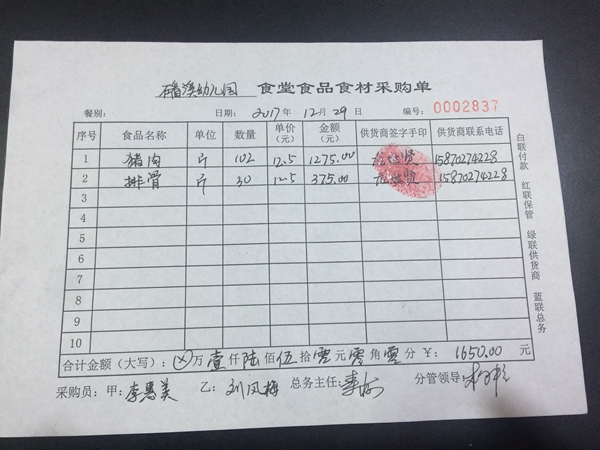 磻溪幼儿园 食堂食品食材采购单
餐别: 日期: 2017年 12月 29日 编号: 0002837
序号 食品名称 单位 数量 单价(元) 金额(元) 供货商签字手印 供货商联系电话
1 猪肉 斤 102 12.5 1275.00 15870274228
2 排骨 斤 30 12.5 375.00 15870274228
3
4
5
6
7
8
9
10
合计金额(大写): 万 壹仟 陆佰 伍拾 零元 零角 零分 ¥: 1650.00 元
采购员: 甲: 李男美 乙: 刘凤梅 总务主任: 分管领导:
白联付款 红联保管 绿联供货商 蓝联总务